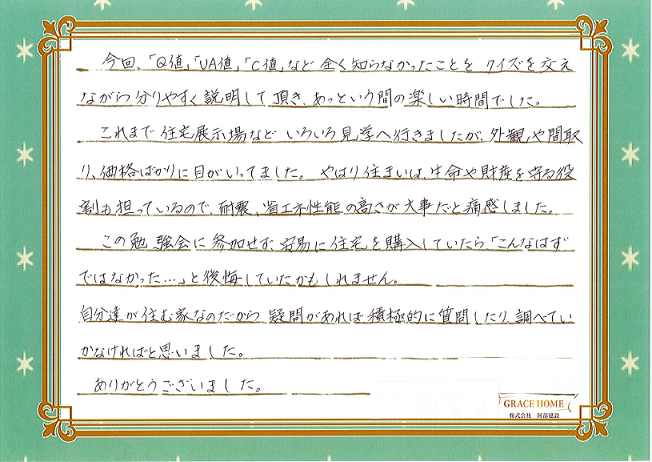 今回、「Q値」「UA値」「C値」など全く知らなかったことをクイズを交え
ながら分りやすく説明して頂き、あっという間の楽しい時間でした。
これまで住宅展示場などいろいろ見学へ行きましたが、外観や間取
り、価格ばかりに目がいってました。やはり住まいは、生命や財産を守る役
割も担っているので、耐震、省エネ性能の高さが大事だと痛感しました。
この勉強会に参加せず、安易に住宅を購入していたら、「こんなはず
ではなかった…」と後悔していたかもしれません。
自分達が住む家なのだから疑問があれば積極的に質問したり、調べてい
かなければと思いました。
ありがとうございました。
GRACE HOME
株式会社 阿部建設